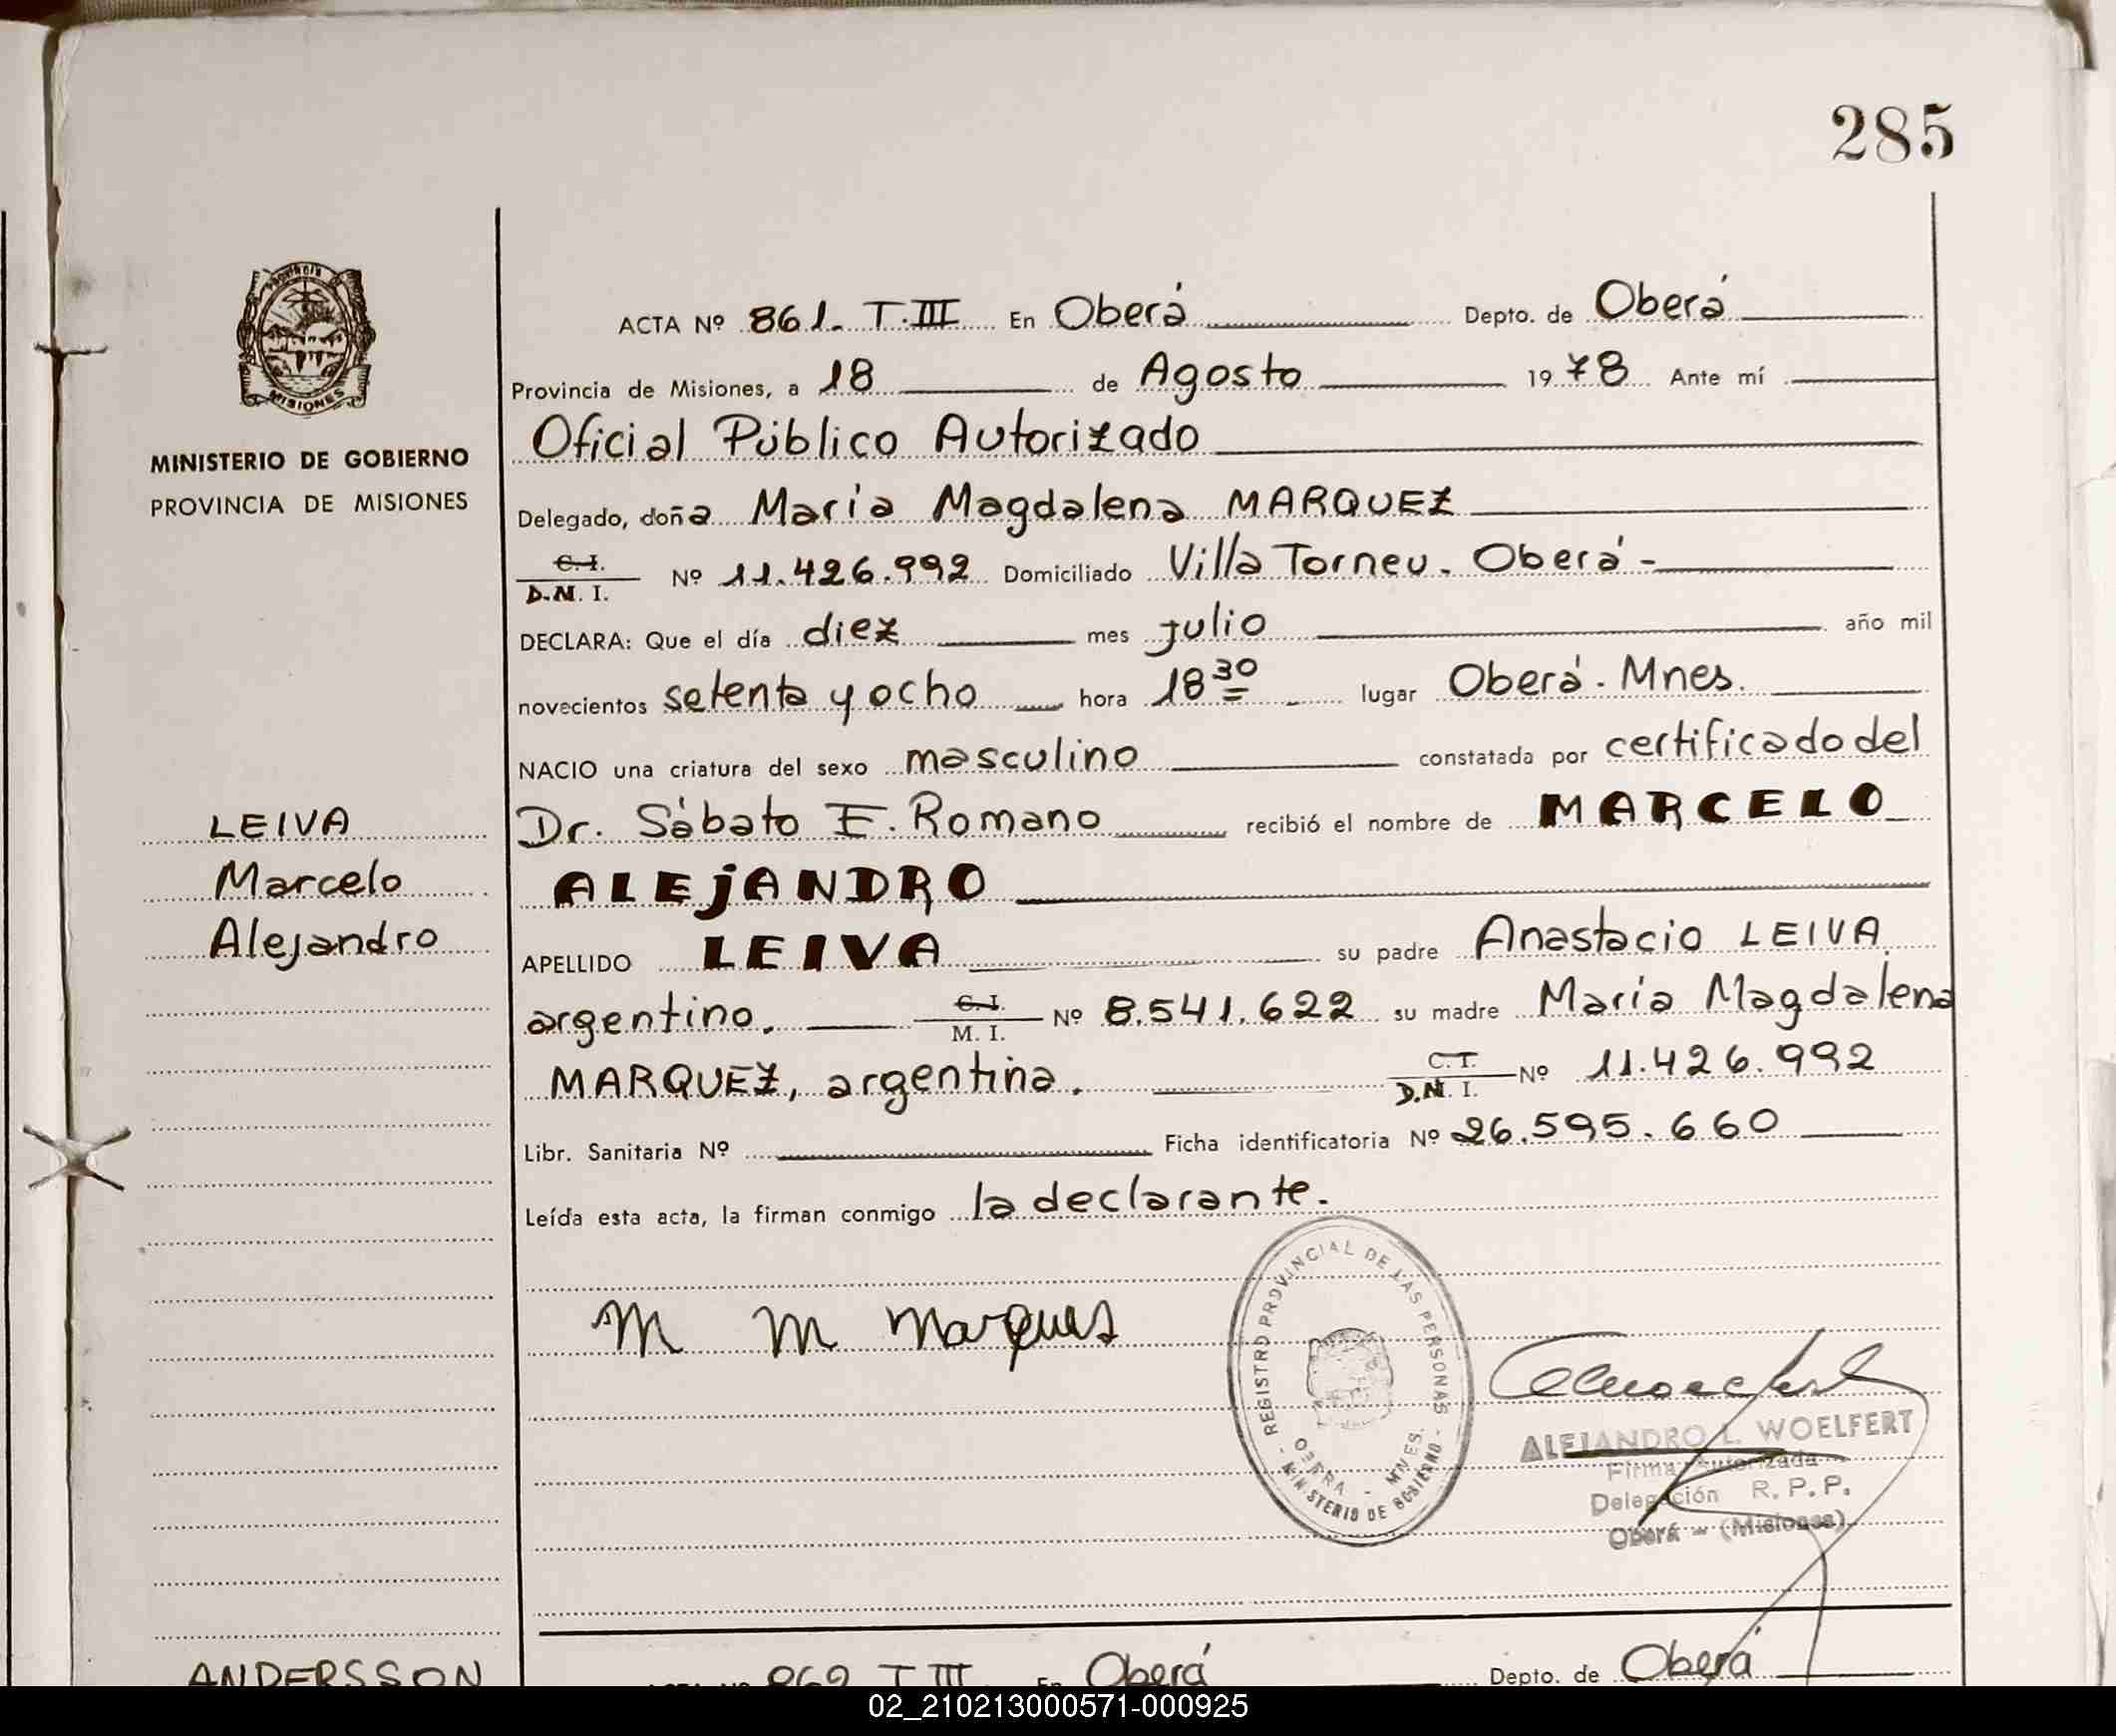 285
MISIONES
MINISTERIO DE GOBIERNO
PROVINCIA DE MISIONES
LEIVA
Marcelo
Alejandro
ACTA Nº 861. T.III En Oberá Depto. de Oberá
Provincia de Misiones, a 18 de Agosto 1978 Ante mí
Oficial Público Autorizado
Delegado, doña Maria Magdalena MARQUEZ
C.I.
D.N.I. Nº 11.426.992 Domiciliado Villa Torneu. Oberá-
DECLARA: Que el día diez mes julio año mil
novecientos setenta y ocho hora 18 30 lugar Oberá. Mnes.
NACIO una criatura del sexo masculino constatada por certificado del
Dr. Sábato E. Romano recibió el nombre de MARCELO
ALEJANDRO
APELLIDO LEIVA su padre Anastacio LEIVA
argentino. C.I.
M. I. Nº 8.541.622 su madre Maria Magdalena
MARQUEZ, argentina. C.I.
D.N.I. Nº 11.426.992
Libr. Sanitaria Nº Ficha identificatoria Nº 26.595.660
Leída esta acta, la firman conmigo la declarante.
M M Marques
REGISTRO PROVINCIAL DE LAS PERSONAS
OBERA - MNES.
MINISTERIO DE GOBIERNO
ALEJANDRO L. WOELFERT
Firma Autorizada
Delegación R.P.P.
Oberá - (Misiones)
ANDERSSON
ACTA Nº 862 T III En Oberá Depto. de Oberá
02_210213000571-000925